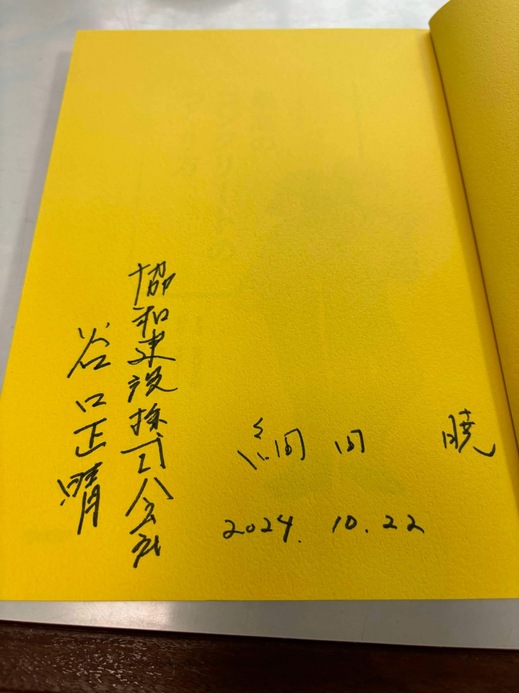 協和建設株式会社
谷口正晴
細田 暁
2024. 10. 22